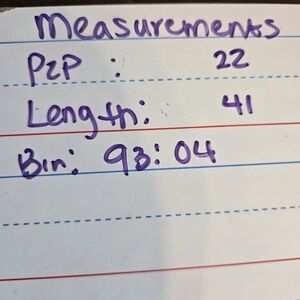 Measurements
P2P : 22
Length: 41
Bin: 93:04